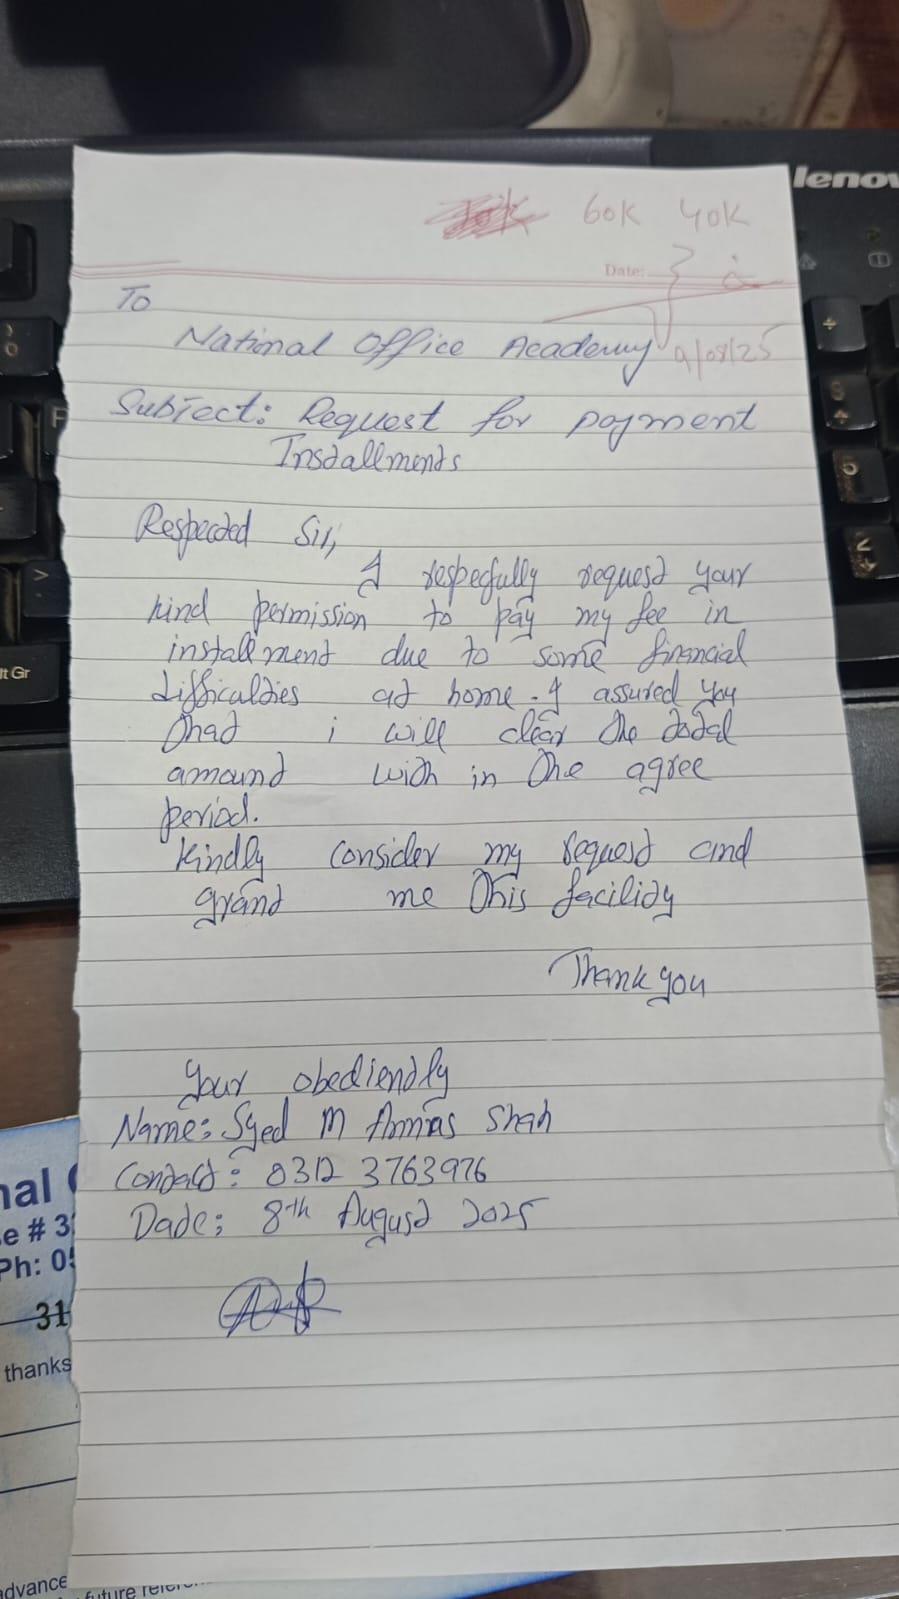 lenov
60K 40K
Date:
9/08/25
To
National Office Academy
Subject: Request for payment
Installments
Respected Sir,
I respecfully request your
kind permission to pay my fee in
installment due to some financial
difficulties at home. I assured you
that i will clear the total
amount with in the agree
period.
Kindly consider my request and
grant me this facility
Thank you
Your obediently
Name: Syed M Ammas Shah
Contact: 0312 3763976
Date: 8th August 2025
nal
e # 3
Ph: 05
31
thanks
advance
future refer
lt Gr